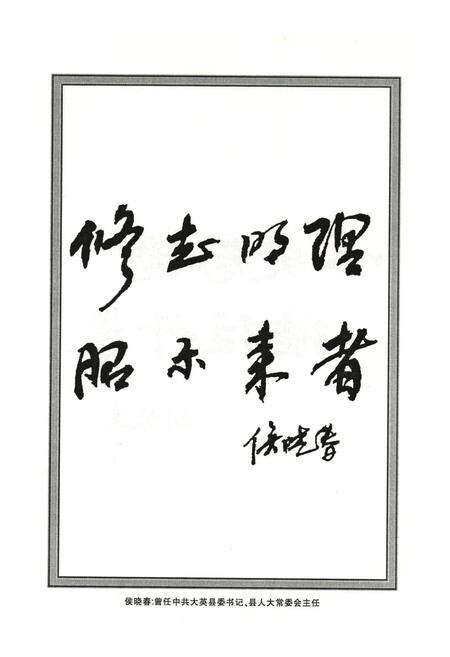 修志明理
昭示来者
侯晓春
侯晓春:曾任中共大英县委书记、县人大常委会主任